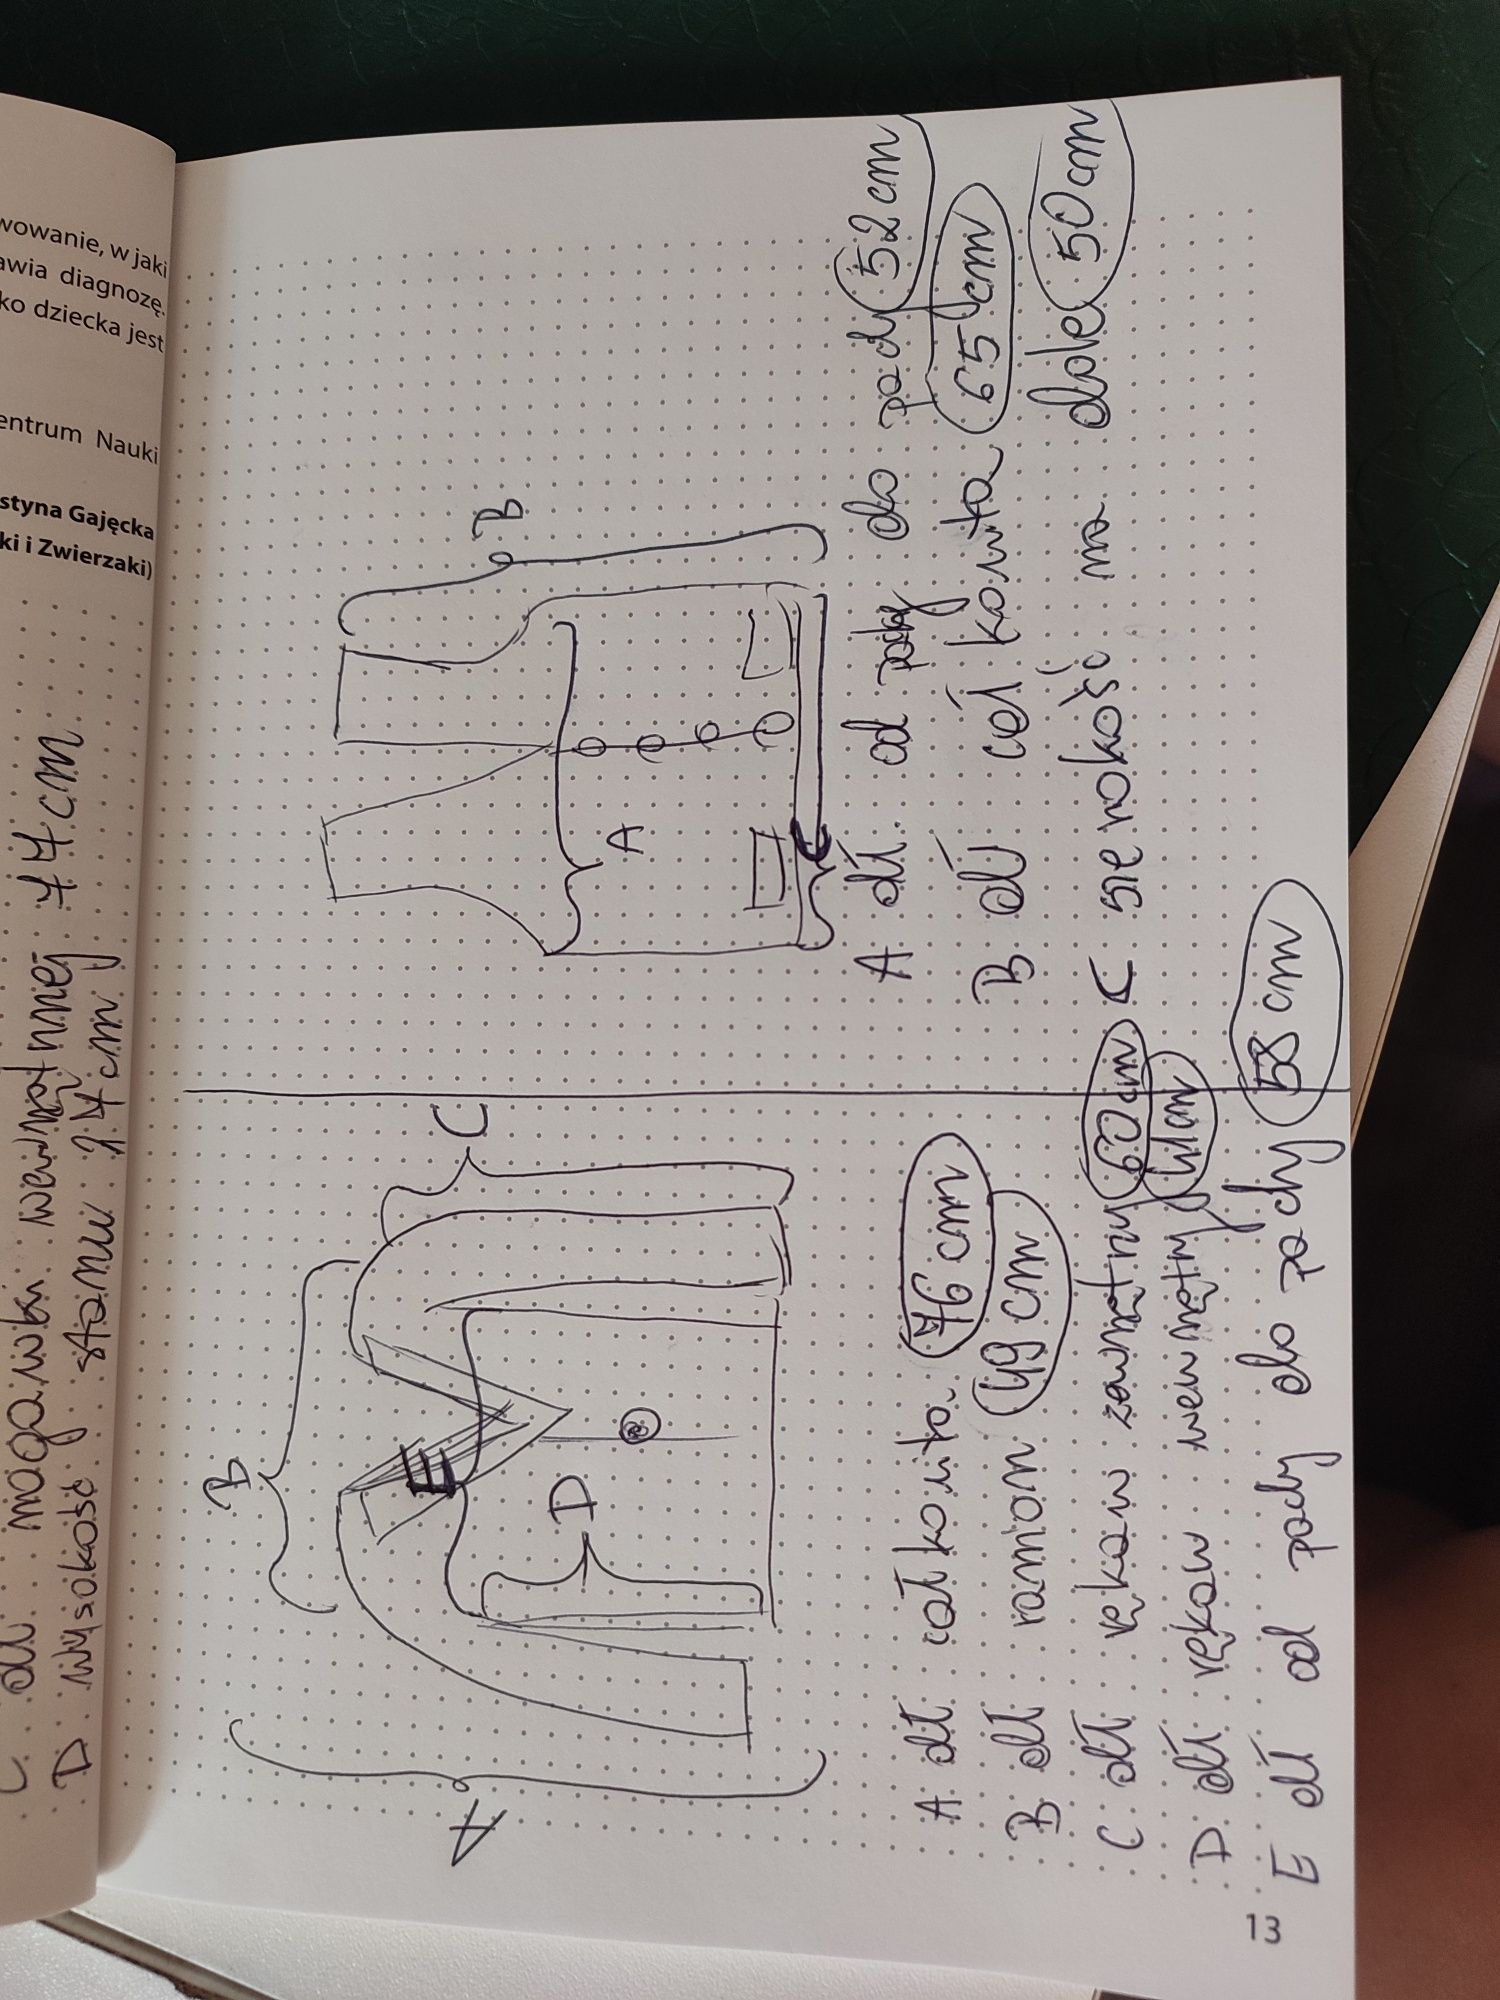 wowanie, w jaki
awia diagnozę.
ko dziecka jest
entrum Nauki
styna Gajęcka
ki i Zwierzaki)
C dł nogawki wewnątrnnej 77cm
D wysokość stanu 27cm
B
C
A
E
D
A dł całkowita 76 cm
B dł ramion 49 cm
C dł rękaw zewnątrny 60 cm
D dł rękaw wewnątrny 41cm
E dł od pachy do pachy 58 cm
B
A
C
A dł. od pachy do pachy 52 cm
B dł całkowita 65 cm
C szerokość na dole 50 cm
13